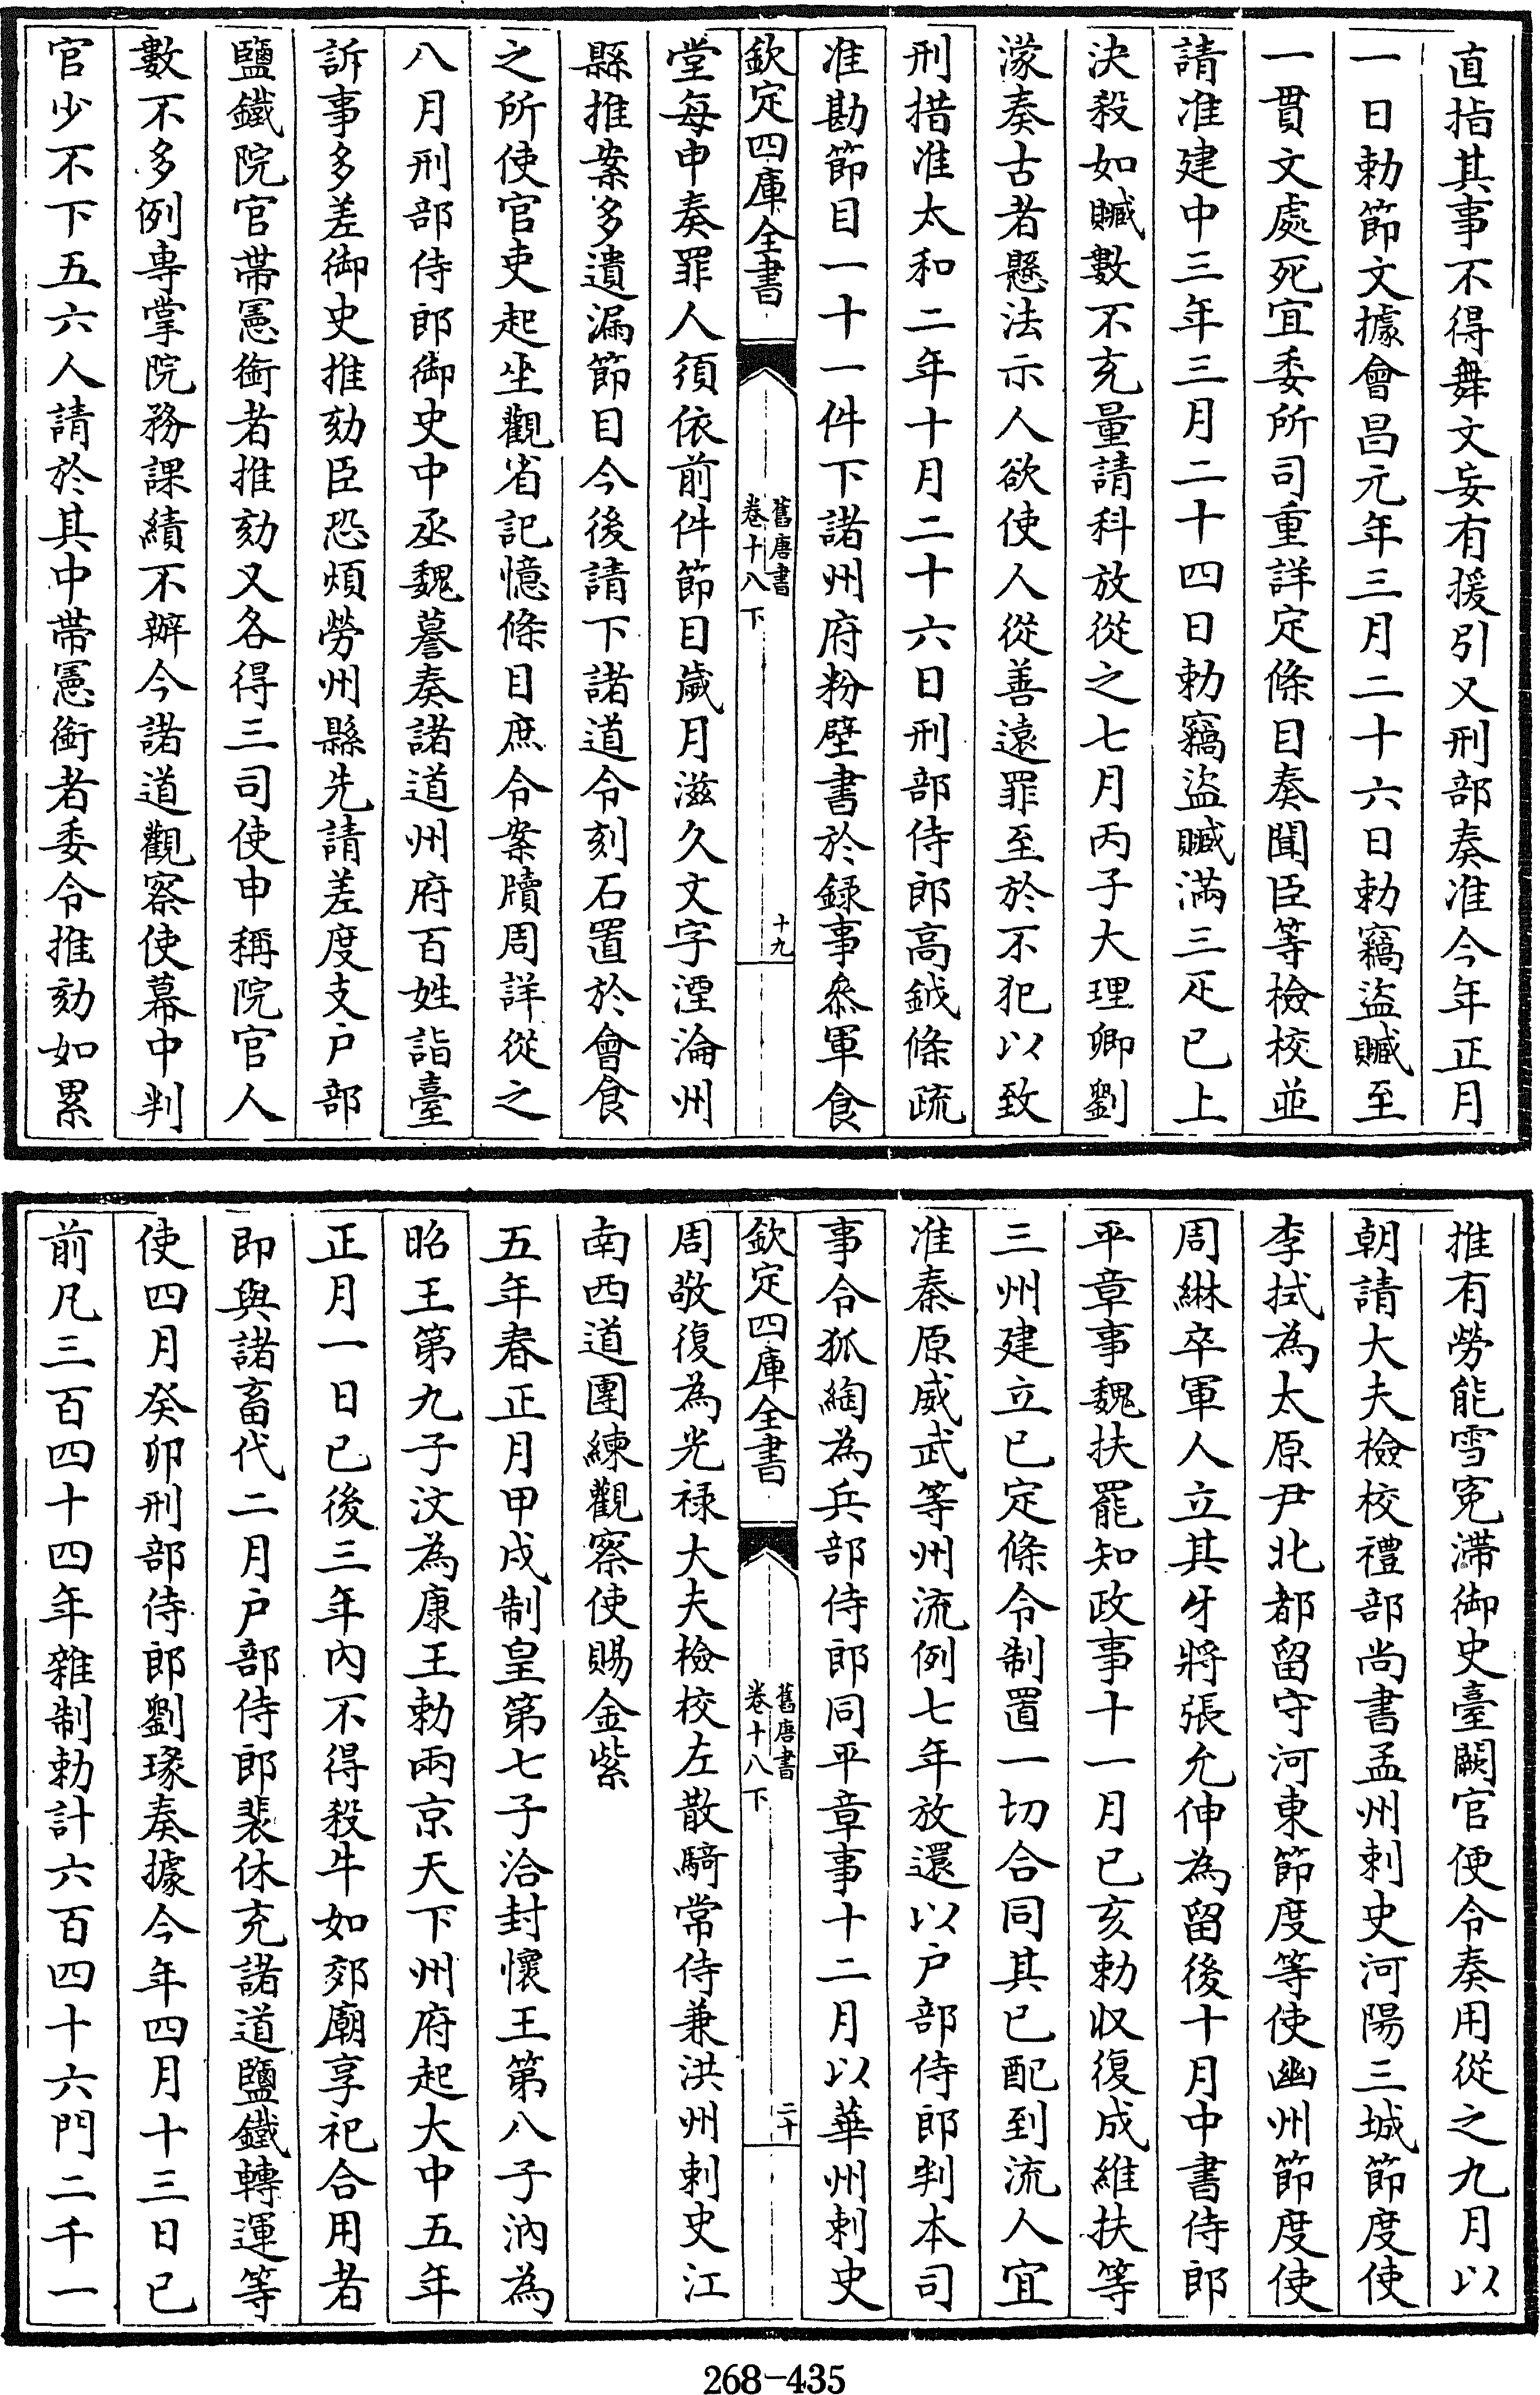 直指其事不得舞文妄有援引又刑部奏准今年正月
一日勅節文據會昌元年三月二十六日勅竊盜贓至
一貫文處死宜委所司重詳定條目奏聞臣等檢校並
請准建中三年三月二十四日勅竊盜贓滿三疋已上
決殺如贓數不充量請科放從之七月丙子大理卿劉
濛奏古者懸法示人欲使人從善遠罪至於不犯以致
刑措准太和二年十月二十六日刑部侍郎高釴條疏
准勘節目一十一件下諸州府粉壁書於録事叅軍食
欽定四庫全書
舊唐書
卷十八下
十九
堂每申奏罪人須依前件節目歲月滋久文字湮淪州
縣推案多遺漏節目今後請下諸道令刻石置於會食
之所使官吏起坐觀省記憶條目庶令案牘周詳從之
八月刑部侍郎御史中丞魏謩奏諸道州府百姓詣臺
訴事多差御史推劾臣恐煩勞州縣先請差度支户部
鹽鐵院官帶憲銜者推劾又各得三司使申稱院官人
數不多例專掌院務課績不辦今諸道觀察使幕中判
官少不下五六人請於其中帶憲銜者委令推劾如累
推有勞能雪寃滯御史臺闕官便令奏用從之九月以
朝請大夫檢校禮部尚書孟州刺史河陽三城節度使
李拭為太原尹北都留守河東節度等使幽州節度使
周綝卒軍人立其牙將張允伸為留後十月中書侍郎
平章事魏扶罷知政事十一月己亥勅収復成維扶等
三州建立已定條令制置一切合同其已配到流人宜
准秦原威武等州流例七年放還以户部侍郎判本司
事令狐綯為兵部侍郎同平章事十二月以華州刺史
欽定四庫全書
舊唐書
卷十八下
二十
周敬復為光禄大夫檢校左散騎常侍兼洪州刺史江
南西道團練觀察使賜金紫
五年春正月甲戌制皇第七子洽封懷王第八子汭為
昭王第九子汶為康王勅兩京天下州府起大中五年
正月一日已後三年内不得殺牛如郊廟享祀合用者
即與諸畜代二月户部侍郎裴休充諸道鹽鐵轉運等
使四月癸卯刑部侍郎劉瑑奏據今年四月十三日已
前凡三百四十四年雜制勅計六百四十六門二千一
268-435